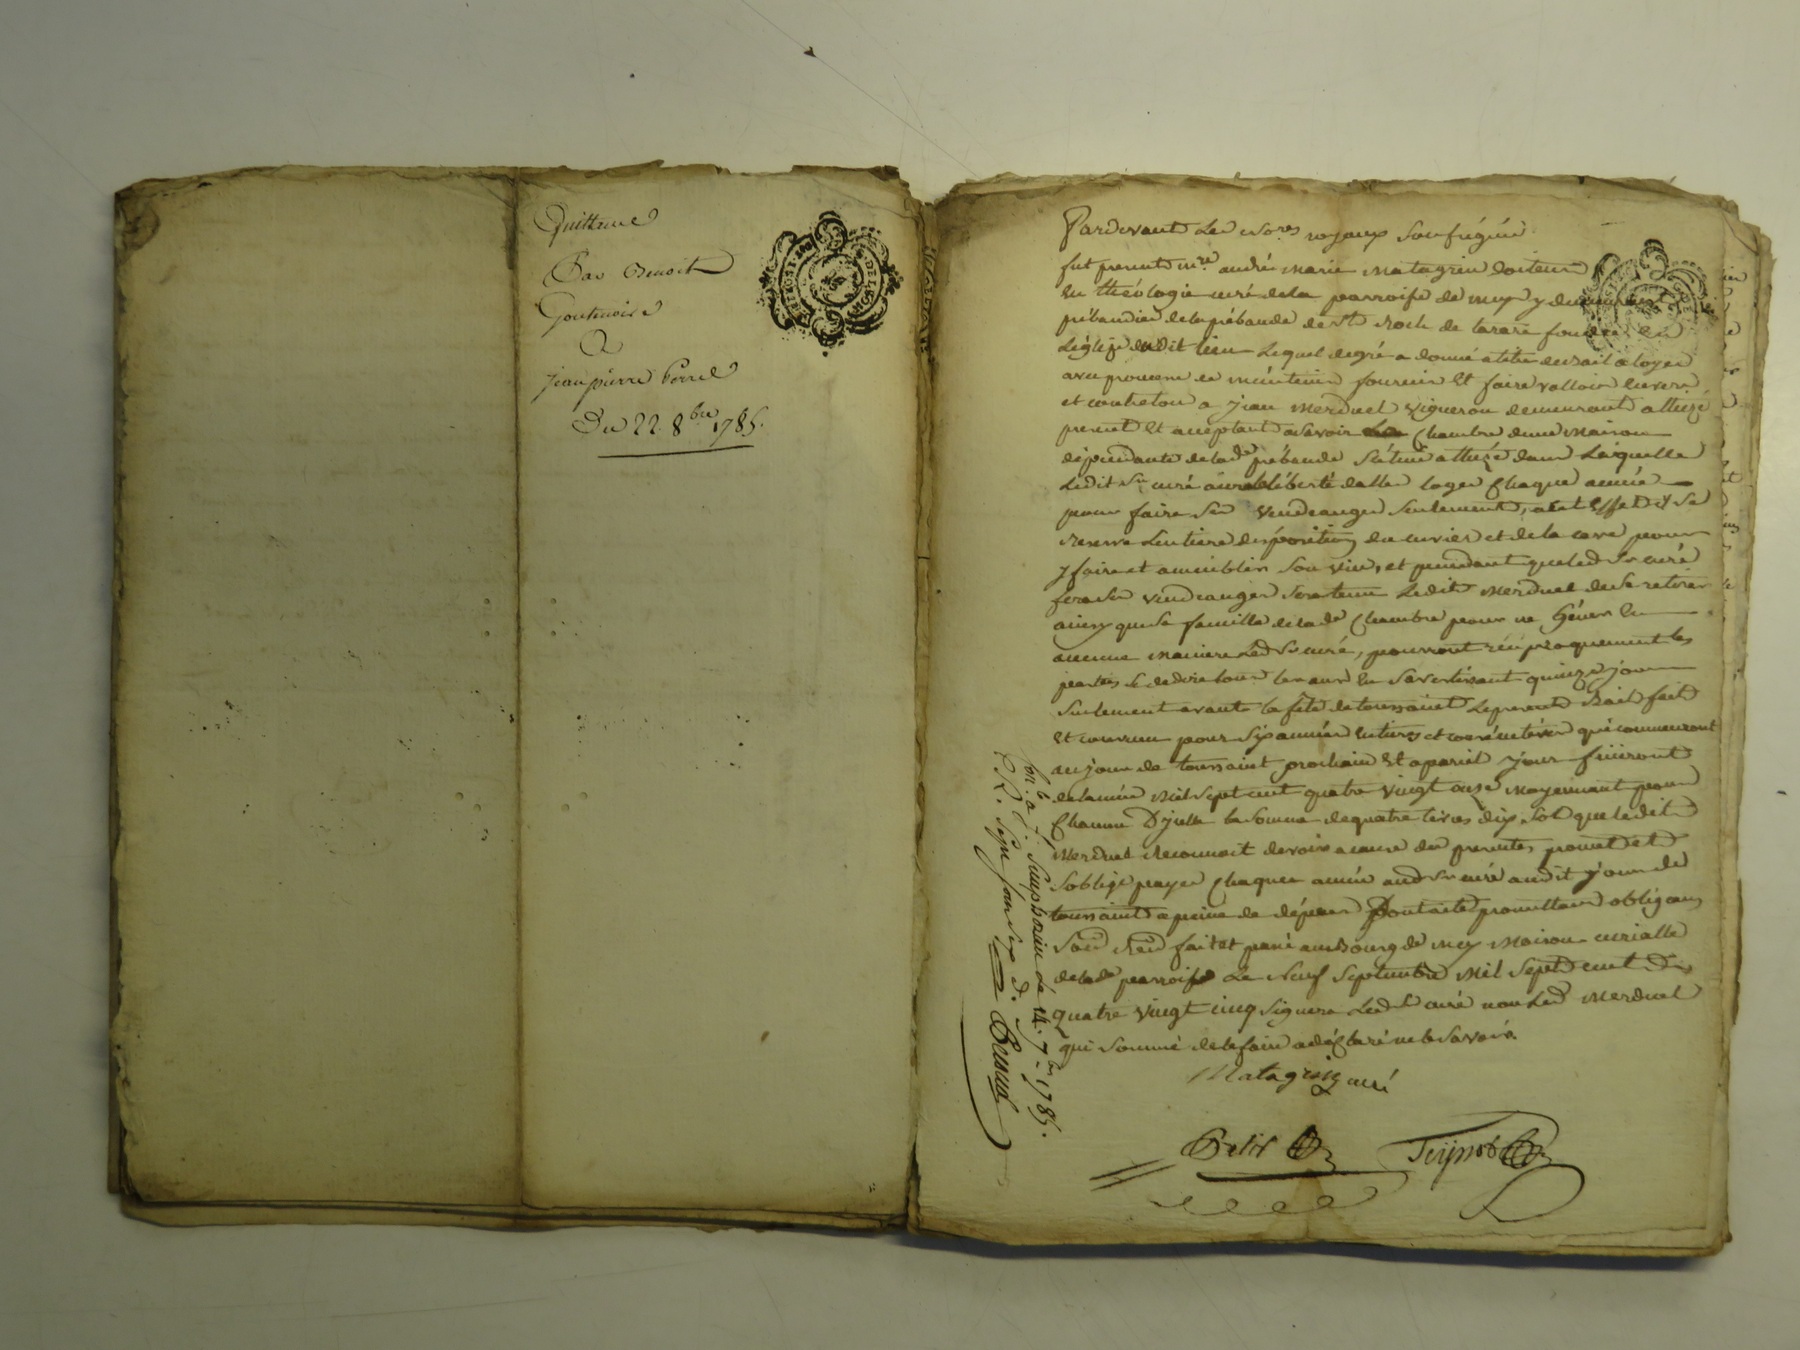 Quittance
Par Benoit
Goutenoire
a
Jean pierre Perrel
Du 22. 8bre 1785.
Pardevant Les no.res royaux Soussignés
fut present m.re andré Marie Matagrin docteur
En théologie curé de la parroisse de my y demeurant
prébandier de la prébande de st Roch de tarare fondée En
Léglise dudit lieu Lequel de gré a donné a titre de bail a loyer
avec promesse de maintenir fournir Et faire valloir Envers
et contre tous a jean Merduel Vigneron demeurant a thizé
present Et acceptant a Savoir Chambre d'une Maison
dépendante de lad.e prébande Scituée a thizé dans Laquelle
Ledit Sr curé aura la liberté d'aller loger Chaque année
pour faire Ses Vendanges Seulement, a cet Effet il Se
reserve L'entiere disposition du cuvier et de la cave pour
y faire et Son vin, et pendant que led. Sr curé
fera Ses Vendanges Sera tenu Ledit Merduel de Se retirer
ainsy que Sa famille de lad.e Chambre pour ne Géner En
aucune Maniere Led. Sr curé, pourront réciproquement les
parties Se dedire tous les ans En S'avertissant quinze jours
Seulement avant la fête de toussaint Le present Bail fait
Et convenu pour Six années Entieres et consécutives qui commenceront
au jour de toussaint prochain Et a pareil jour finiront
de l'année Mil Sept cent quatre vingt onze Moyennant pour
Chacune D'jcelles la Somme de quatre livres dix Sols que ledit
Merduel Reconnoit devoir a cause des presentes promet et
S'oblige payer Chaque année aud. Sr curé audit jour de
toussaint a peine de dépens Dont acte promettans obligeans
Soum. Ren. fait et passé au Bourg de my Maison curialle
de lad.e parroisse Le Neuf Septembre Mil Sept cent
quatre Vingt cinq Signera Led. Sr curé non Led. Merduel
qui Sommé de le faire a déclaré ne le Savoir.
Matagrin curé
Con.lé a St. Simphorien Le 14. 7bre 1785.
R. Seize Sous Six d. Besnard